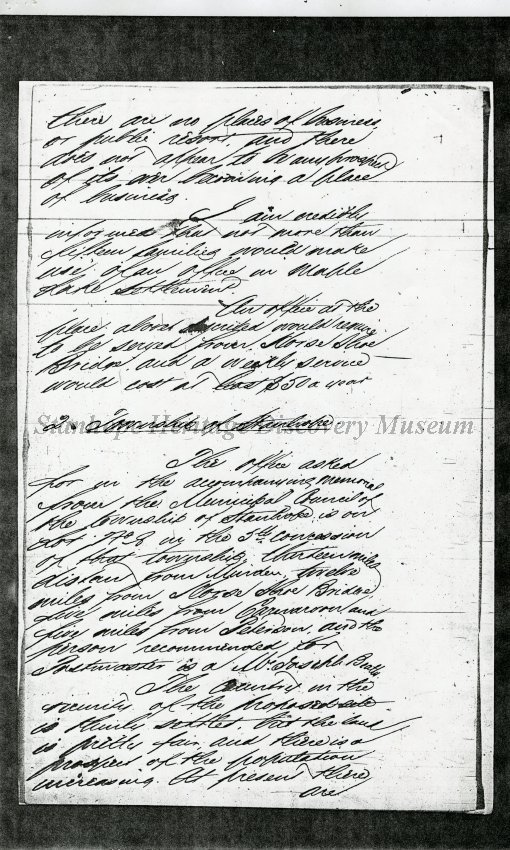 there are no places of business
or public resort, and there
does not appear to be any prospect
of its ever becoming a place
of business.
I am credibly
informed that not more than
fifteen families would make
use of an office in Maple
Lake Settlement.
An office at the
place above would require
to be served from Horse Shoe
Bridge and a weekly service
would cost at least $50 a year
2. Township of Stanhope
Stanhope Heritage Discovery Museum
The office asked
for in the accompanying memorial
from the Municipal Council of
the township of Stanhope is on
Lot No 8 in the 5th concession
of that township thirteen miles
distant from Minden, twelve
miles from Horse Shoe Bridge,
five miles from and
five miles from Peterson, and the
person recommended for
Postmaster is a Mr Joseph
The Country in the
vicinity of the proposed site
is thinly settled but the land
is pretty fair and there is a
prospect of the population
increasing. At present there
are